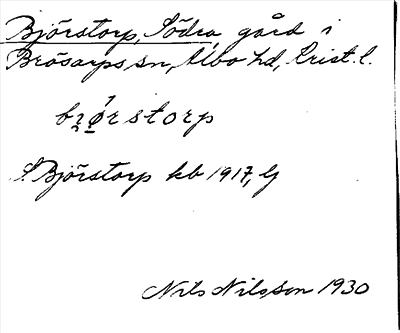 Björstorp, Södra, gård i
Brösarps sn, Albo hd, Krist. l.
bʒǿ̱rstorp
S. Björstorp kb 1917, G
Nils Nilsson 1930